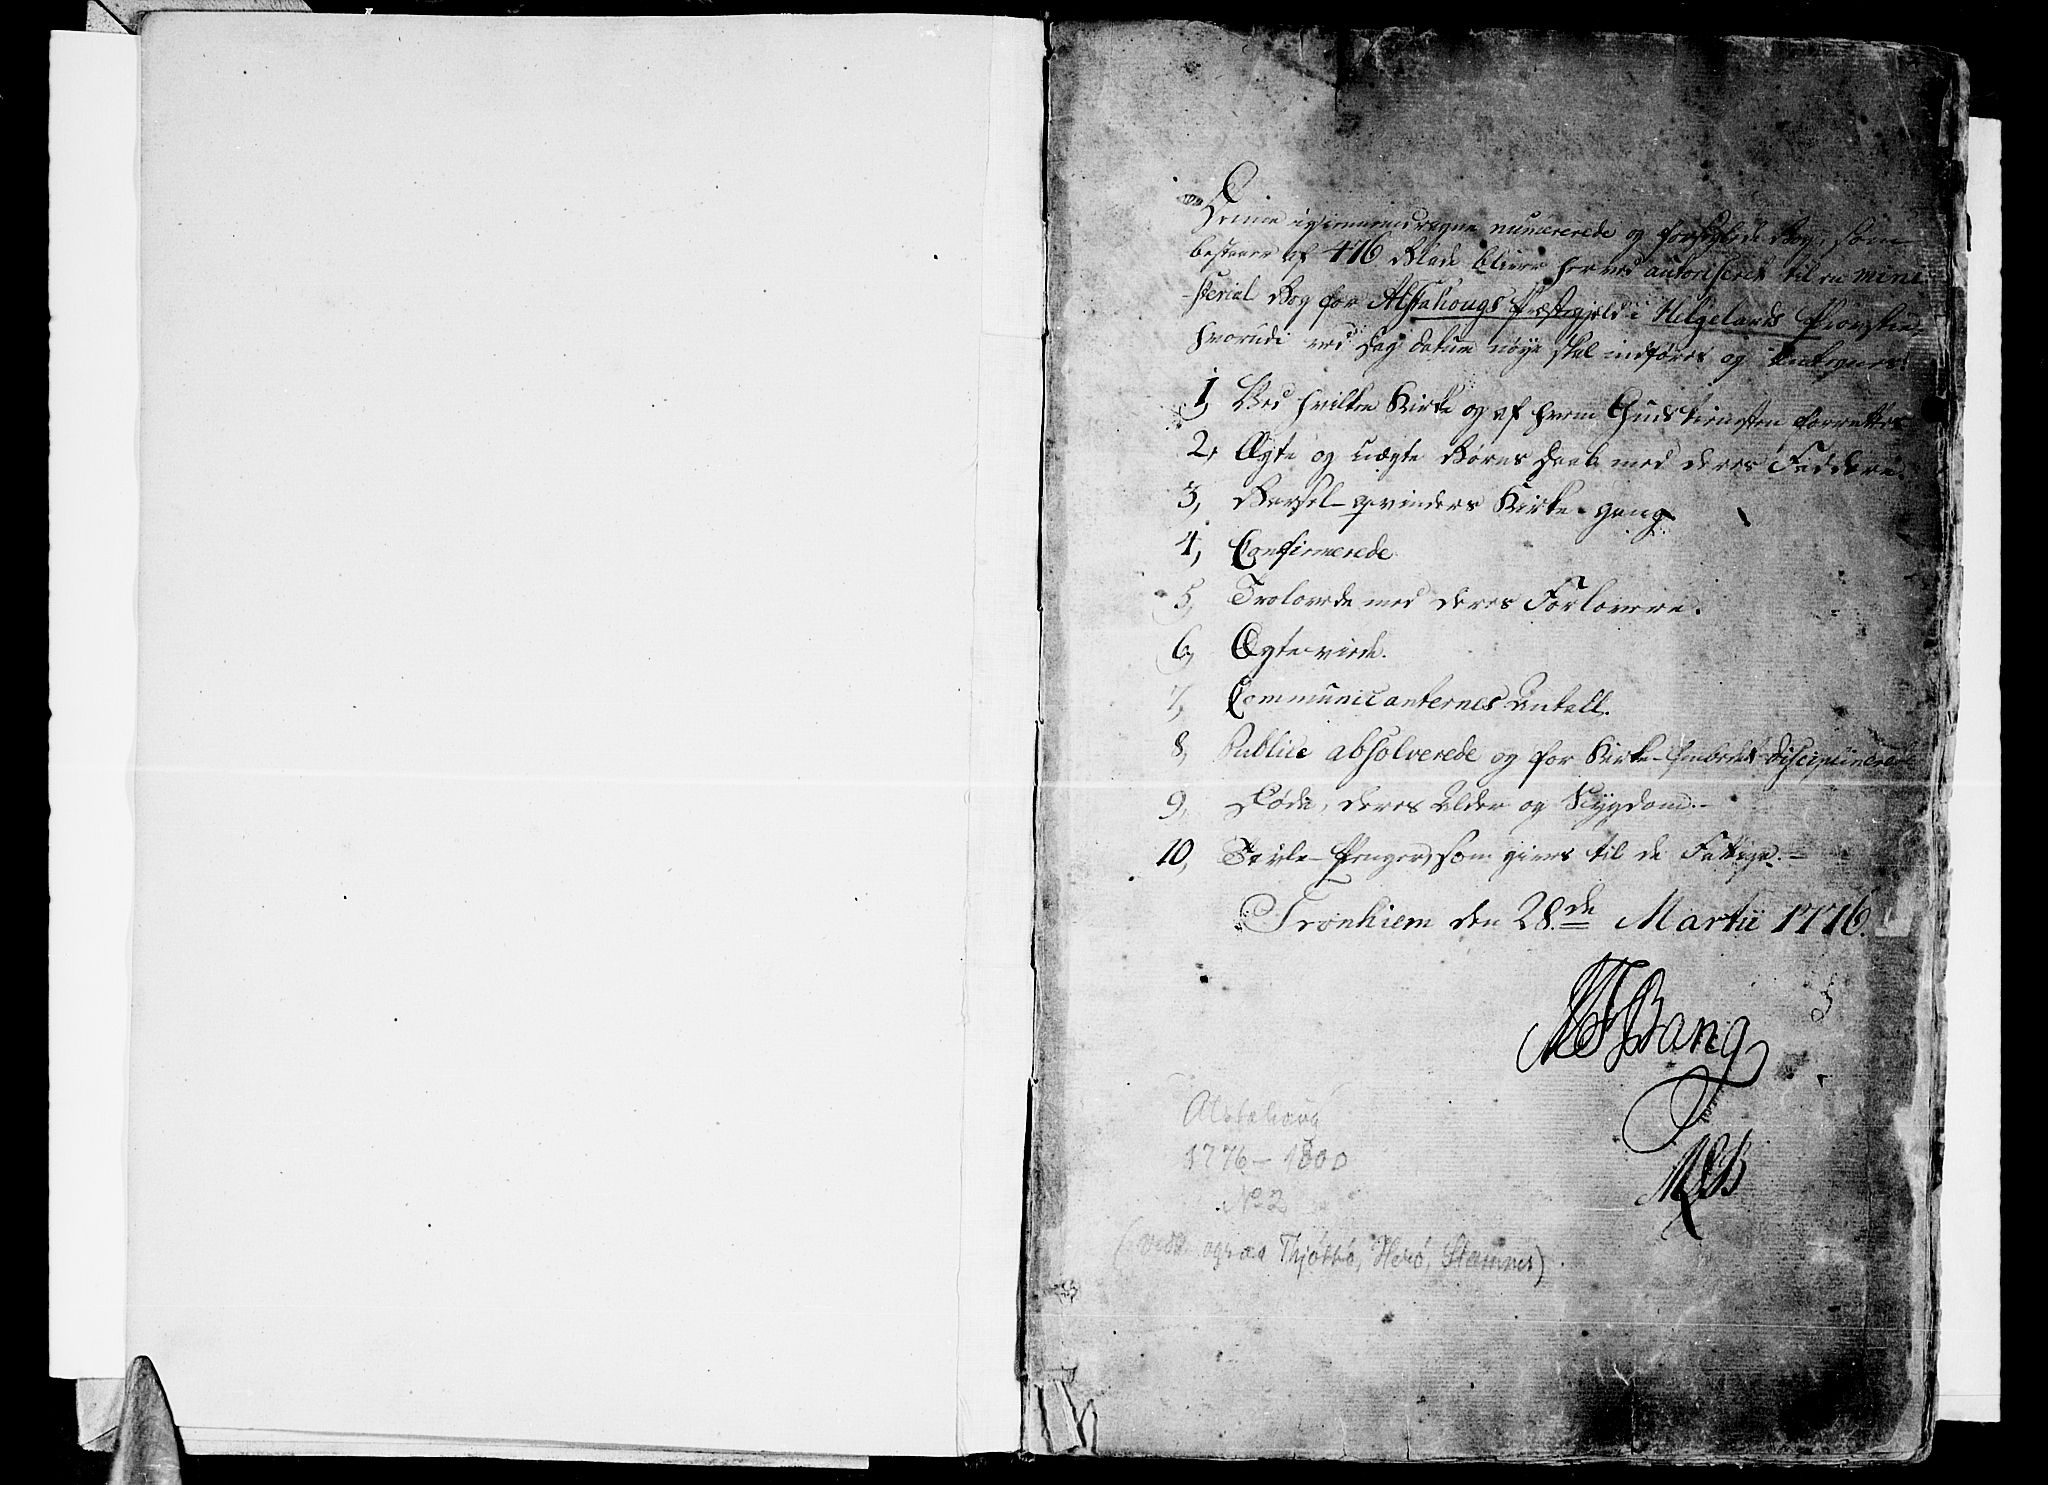 Denne igiennemdragne numererede og forseglede Bog, som
bestaaer af 416 Blade bliver herved autoriseret til en mini
-sterial Bog for Alstahougs Præstegield i Helgelands Provstie,
hvorudi ved Dag datum nøye skal indføres og antegnes:
1, Ved hvilken Kirke og af hvem Gudstiensten forrettes
2, Ægte og uægte Børns Daab med deres Faddere.
3, Barsel-qvinders Kirke-gang
4, Confirmerede
5, Trolovede med deres Forlovere.
6, Ægteviede.
7, Communicanternes Antall.
8, Publice absolverede og for Kirke-Embedet disciplinerede
9, Døde, deres Alder og Sygdom.-
10, Tavle-Penger, som gives til de Fattige.-
Tronhiem den 28.de Martii 1776.
MFBang
Alstahaug
1776-1800
No 2
( ogsaa Thjøttø, Herø, Stamnes)